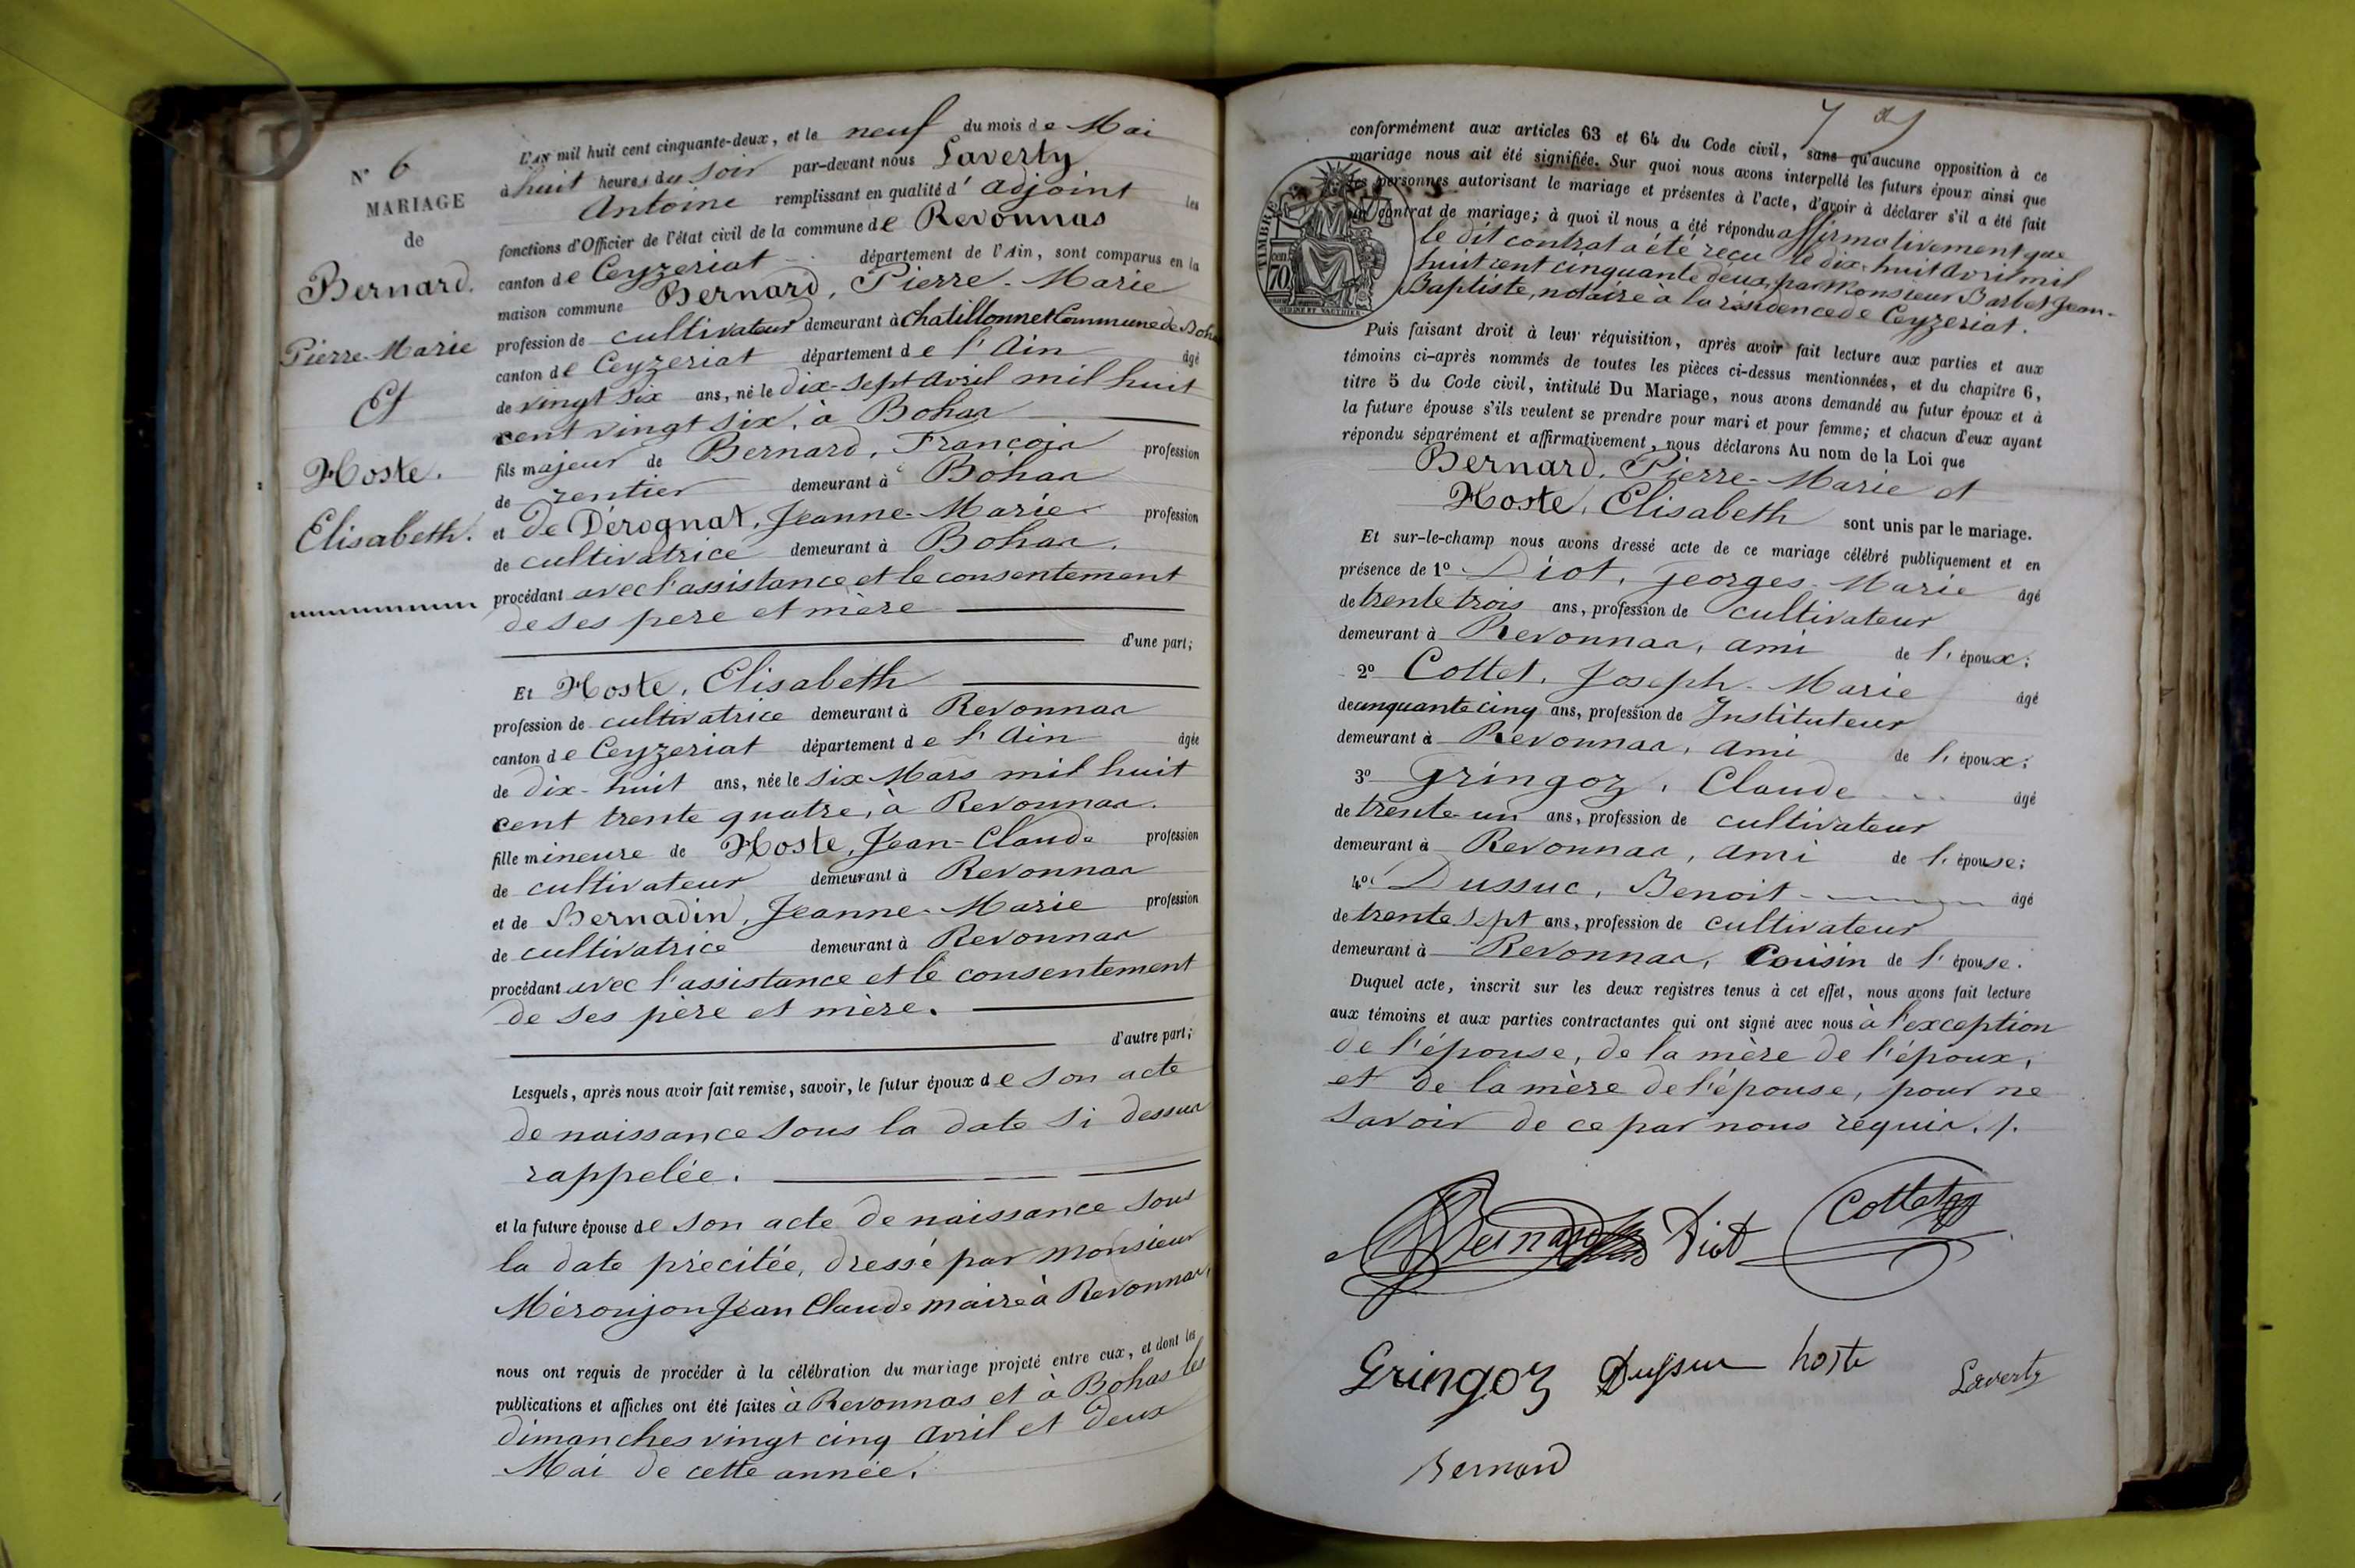 N° 6
MARIAGE
de
Bernard.
Pierre-Marie
Et
Hoste.
Elisabeth.
L'an mil huit cent cinquante-deux, et le neuf du mois de Mai
à huit heures du soir par-devant nous Laverty
Antoine remplissant en qualité d'adjoint les
fonctions d'Officier de l'état civil de la commune de Revonnas
canton de Ceyzeriat département de l'Ain, sont comparus en la
maison commune Bernard, Pierre-Marie
profession de cultivateur demeurant à Chatillonnet Commune de Bohas
canton de Ceyzeriat département de l'Ain âgé
de vingt six ans, né le dix-sept avril mil huit
cent vingt six, à Bohas
fils majeur de Bernard, François profession
de rentier demeurant à Bohas
et de Dérognat, Jeanne-Marie profession
de cultivatrice demeurant à Bohas.
procédant avec l'assistance et le consentement
de ses pere et mère
d'une part;
Et Hoste, Elisabeth
profession de cultivatrice demeurant à Revonnas
canton de Ceyzeriat département de l'Ain âgée
de dix-huit ans, née le six Mars mil huit
cent trente quatre, à Revonnas.
fille mineure de Hoste, Jean-Claude profession
de cultivateur demeurant à Revonnas
et de Bernadin, Jeanne-Marie profession
de cultivatrice demeurant à Revonnas
procédant avec l'assistance et le consentement
de ses père et mère.
d'autre part;
Lesquels, après nous avoir fait remise, savoir, le futur époux de son acte
de naissance sous la date si dessus
rappelée.
et la future épouse de son acte de naissance sous
la date précitée, dressé par monsieur
Méronjon Jean Claude maire à Revonnas,
nous ont requis de procéder à la célébration du mariage projeté entre eux, et dont les
publications et affiches ont été faites à Revonnas et à Bohas les
dimanches vingt cinq avril et deux
Mai de cette année.
conformément aux articles 63 et 64 du Code civil, sans qu'aucune opposition à ce
mariage nous ait été signifiée. Sur quoi nous avons interpellé les futurs époux ainsi que
les personnes autorisant le mariage et présentes à l'acte, d'avoir à déclarer s'il a été fait
un contrat de mariage; à quoi il nous a été répondu affirmativement que
le dit contrat a été reçu le dix-huit avril mil
huit cent cinquante deux, par Monsieur Barbet Jean-
Baptiste, notaire à la résidence de Ceyzeriat.
TIMBRE
70
Puis faisant droit à leur réquisition, après avoir fait lecture aux parties et aux
témoins ci-après nommés de toutes les pièces ci-dessus mentionnées, et du chapitre 6,
titre 5 du Code civil, intitulé Du Mariage, nous avons demandé au futur époux et à
la future épouse s'ils veulent se prendre pour mari et pour femme; et chacun d'eux ayant
répondu séparément et affirmativement, nous déclarons Au nom de la Loi que
Bernard, Pierre-Marie et
Hoste, Elisabeth sont unis par le mariage.
Et sur-le-champ nous avons dressé acte de ce mariage célébré publiquement et en
présence de 1° Diot, Georges-Marie âgé
de trente trois ans, profession de cultivateur
demeurant à Revonnas, ami de l'époux;
2° Cottet, Joseph-Marie âgé
de cinquante cinq ans, profession de Instituteur
demeurant à Revonnas, ami de l'époux;
3° Gringoz, Claude âgé
de trente-un ans, profession de cultivateur
demeurant à Revonnas, ami de l'épouse;
4° Dussuc, Benoit âgé
de trente sept ans, profession de cultivateur
demeurant à Revonnas, Cousin de l'épouse.
Duquel acte, inscrit sur les deux registres tenus à cet effet, nous avons fait lecture
aux témoins et aux parties contractantes qui ont signé avec nous à l'exception
de l'épouse, de la mère de l'époux,
et de la mère de l'épouse, pour ne
savoir de ce par nous requis.
Bernard Diot Cottet
Gringoz Dussuc hoste Laverty
Bernard